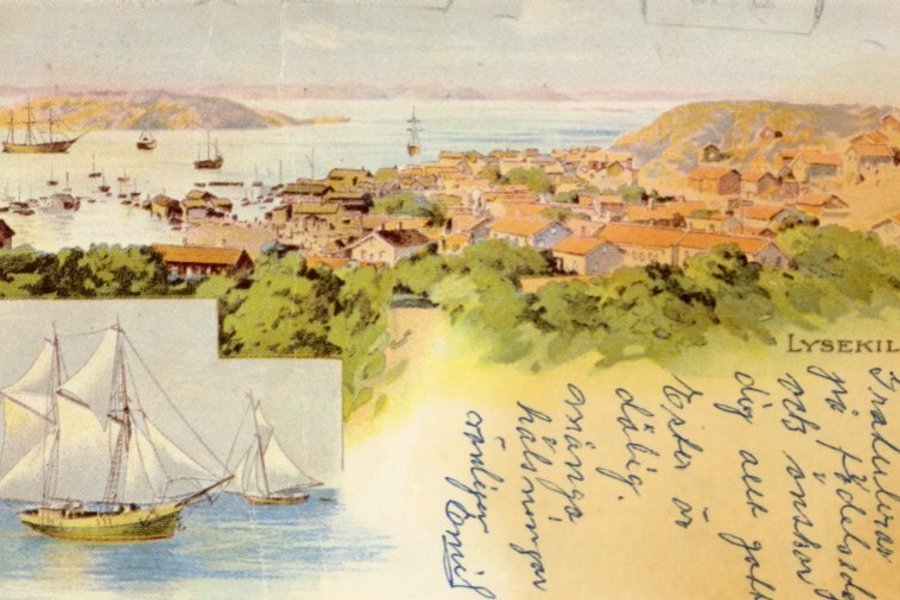 LYSEKIL
Gratulerar
på födelseda
och önskar
dig allt godt
Ester är
dålig.
många
hälsningar
Emil